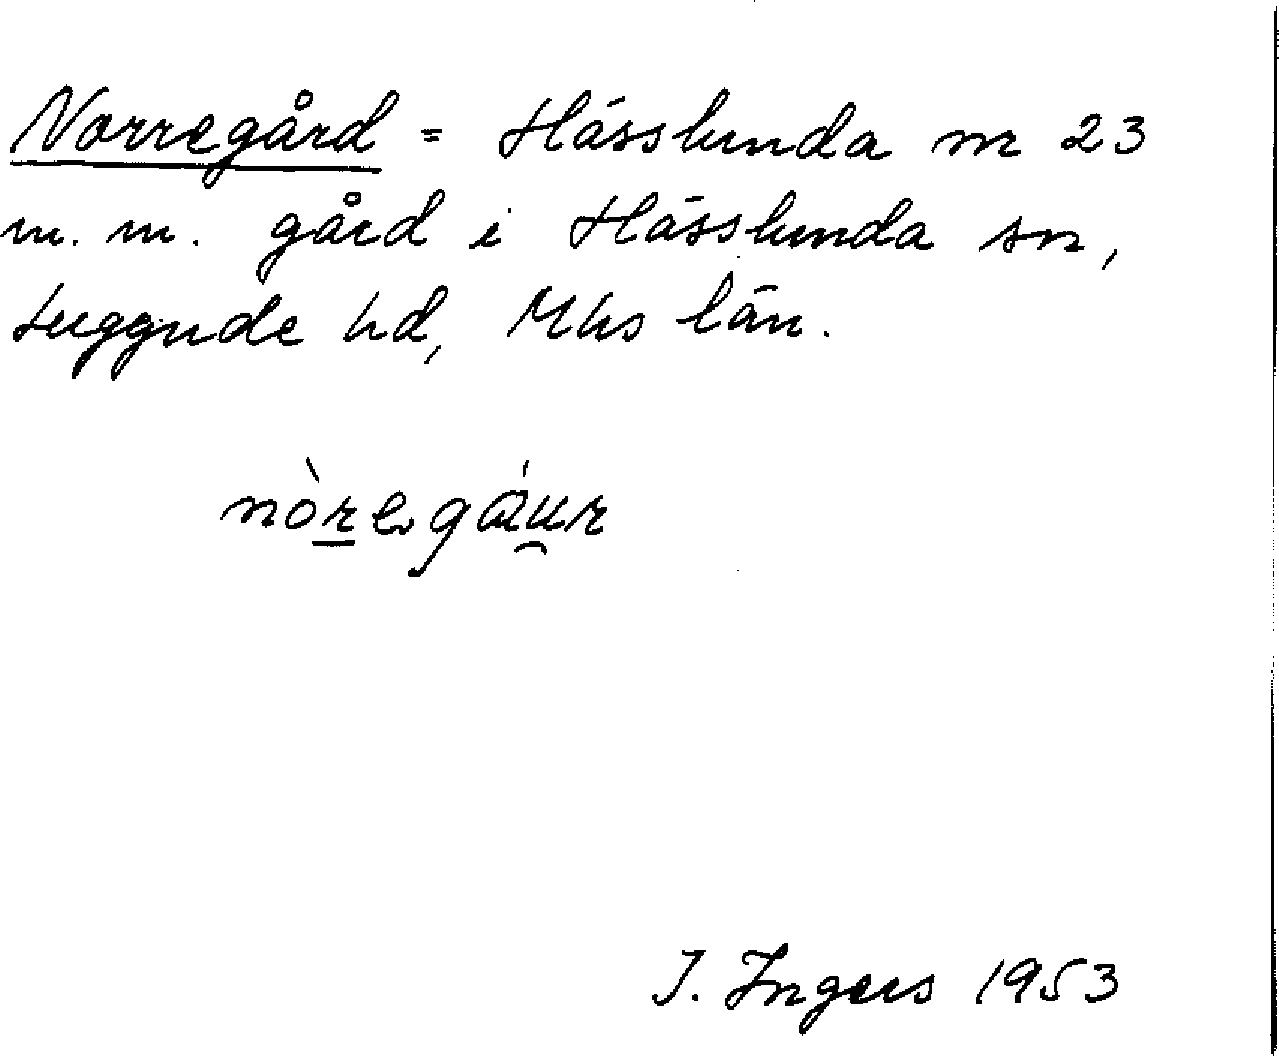 Norregård = Hässlunda nr 23
m. m. gård i Hässlunda sn,
Luggude hd, Mhs län.
nòregáur
I. Ingers 1953